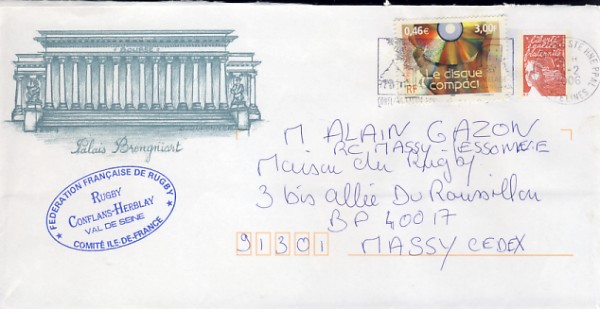 BOURSE
Palais Brongniart
0,46€ 3,00F
Le disque
compact
RF
Liberté
égalité
fraternité
FEDERATION FRANÇAISE DE RUGBY
RUGBY
CONFLANS-HERBLAY
VAL DE SEINE
COMITÉ ILE-DE-FRANCE
M ALAIN GAZON
RC MASSY-ESSONNE
Maison du Rugby
3 bis allée Du Roussillon
BP 40017
91301 MASSY CEDEX